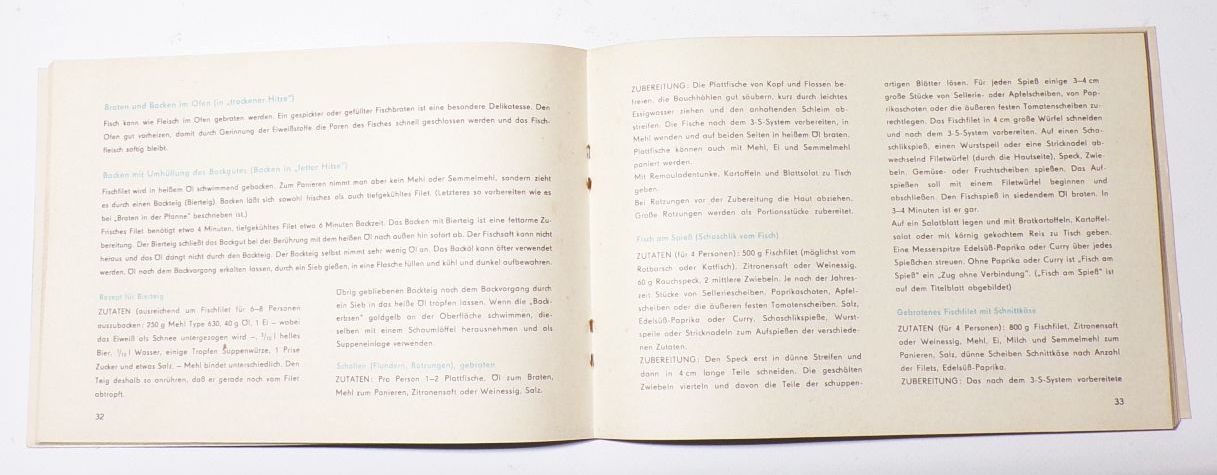 Braten und Backen im Ofen (in „trockener Hitze")
Fisch kann wie Fleisch im Ofen gebraten werden. Ein gespickter oder gefüllter Fischbraten ist eine besondere Delikatesse. Den
Ofen gut vorheizen, damit durch Gerinnung der Eiweißstoffe die Poren des Fisches schnell geschlossen werden und das Fisch-
fleisch saftig bleibt.
Backen mit Umhüllung des Backgutes (Backen in „fetter Hitze")
Fischfilet wird in heißem Öl schwimmend gebacken. Zum Panieren nimmt man aber kein Mehl oder Semmelmehl, sondern zieht
es durch einen Backteig (Bierteig). Backen läßt sich sowohl frisches als auch tiefgekühltes Filet. (Letzteres so vorbereiten wie es
bei „Braten in der Pfanne" beschrieben ist.)
Frisches Filet benötigt etwa 4 Minuten, tiefgekühltes Filet etwa 6 Minuten Backzeit. Das Backen mit Bierteig ist eine fettarme Zu-
bereitung. Der Bierteig schließt das Backgut bei der Berührung mit dem heißen Öl nach außen hin sofort ab. Der Fischsaft kann nicht
heraus und das Öl dringt nicht durch den Backteig. Der Backteig selbst nimmt sehr wenig Öl an. Das Backöl kann öfter verwendet
werden. Öl nach dem Backvorgang erkalten lassen, durch ein Sieb gießen, in eine Flasche füllen und kühl und dunkel aufbewahren.
Rezept für Bierteig
ZUTATEN (ausreichend um Fischfilet für 6–8 Personen
auszubacken: 250 g Mehl Type 630, 40 g Öl, 1 Ei – wobei
das Eiweiß als Schnee untergezogen wird –, 1/10 l helles
Bier, 1/10 l Wasser, einige Tropfen Suppenwürze, 1 Prise
Zucker und etwas Salz. – Mehl bindet unterschiedlich. Den
Teig deshalb so anrühren, daß er gerade noch vom Filet
abtropft.
Übrig gebliebenen Backteig nach dem Backvorgang durch
ein Sieb in das heiße Öl tropfen lassen. Wenn die „Back-
erbsen" goldgelb an der Oberfläche schwimmen, die-
selben mit einem Schaumlöffel herausnehmen und als
Suppeneinlage verwenden.
Schollen (Flundern, Rotzungen), gebraten
ZUTATEN: Pro Person 1–2 Plattfische, Öl zum Braten,
Mehl zum Panieren, Zitronensaft oder Weinessig, Salz.
32
ZUBEREITUNG: Die Plattfische von Kopf und Flossen be-
freien, die Bauchhöhlen gut säubern, kurz durch leichtes
Essigwasser ziehen und den anhaftenden Schleim ab-
streifen. Die Fische nach dem 3-S-System vorbereiten, in
Mehl wenden und auf beiden Seiten in heißem Öl braten.
Plattfische können auch mit Mehl, Ei und Semmelmehl
paniert werden.
Mit Remouladentunke, Kartoffeln und Blattsalat zu Tisch
geben.
Bei Rotzungen vor der Zubereitung die Haut abziehen.
Große Rotzungen werden als Portionsstücke zubereitet.
Fisch am Spieß (Schaschlik vom Fisch)
ZUTATEN (für 4 Personen): 500 g Fischfilet (möglichst vom
Rotbarsch oder Katfisch), Zitronensaft oder Weinessig,
60 g Rauchspeck, 2 mittlere Zwiebeln. Je nach der Jahres-
zeit Stücke von Selleriescheiben, Paprikaschoten, Apfel-
scheiben oder die äußeren festen Tomatenscheiben, Salz,
Edelsüß-Paprika oder Curry, Schaschlikspieße, Wurst-
speile oder Stricknadeln zum Aufspießen der verschiede-
nen Zutaten.
ZUBEREITUNG: Den Speck erst in dünne Streifen und
dann in 4 cm lange Teile schneiden. Die geschälten
Zwiebeln vierteln und davon die Teile der schuppen-
artigen Blätter lösen. Für jeden Spieß einige 3–4 cm
große Stücke von Sellerie- oder Apfelscheiben, von Pap-
rikaschoten oder die äußeren festen Tomatenscheiben zu-
rechtlegen. Das Fischfilet in 4 cm große Würfel schneiden
und nach dem 3-S-System vorbereiten. Auf einen Scha-
schlikspieß, einen Wurstspeil oder eine Stricknadel ab-
wechselnd Filetwürfel (durch die Hautseite), Speck, Zwie-
beln, Gemüse- oder Fruchtscheiben spießen. Das Auf-
spießen soll mit einem Filetwürfel beginnen und
abschließen. Den Fischspieß in siedendem Öl braten. In
3–4 Minuten ist er gar.
Auf ein Salatblatt legen und mit Bratkartoffeln, Kartoffel-
salat oder mit körnig gekochtem Reis zu Tisch geben.
Eine Messerspitze Edelsüß-Paprika oder Curry über jedes
Spießchen streuen. Ohne Paprika oder Curry ist „Fisch am
Spieß" ein „Zug ohne Verbindung". („Fisch am Spieß" ist
auf dem Titelblatt abgebildet)
Gebratenes Fischfilet mit Schnittkäse
ZUTATEN (für 4 Personen): 800 g Fischfilet, Zitronensaft
oder Weinessig, Mehl, Ei, Milch und Semmelmehl zum
Panieren, Salz, dünne Scheiben Schnittkäse nach Anzahl
der Filets, Edelsüß-Paprika.
ZUBEREITUNG: Das nach dem 3-S-System vorbereitete
33